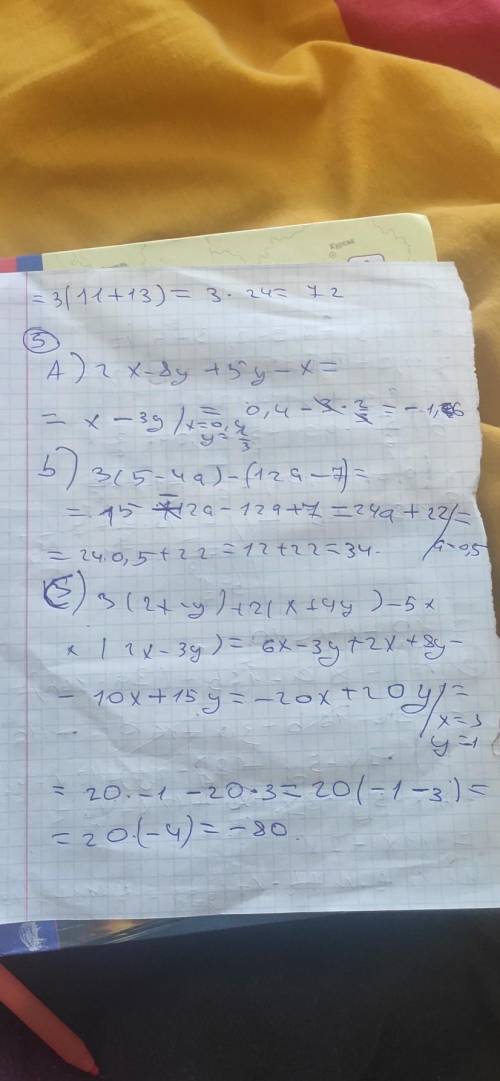 = 3(11+13) = 3 · 24 = 72
5
A) 2x-8y+5y-x=
= x - 3y / x=0,4 y=2/3 = 0,4 - 3 · 2/3 = -1,6
b) 3(5-4a)-(12a-7)=
= 15 - 12a - 12a + 7 = 24a + 22 / a=0,5 =
= 24·0,5+22 = 12+22 = 34.
3(2x-y)+2(x+4y)-5x
x(2x-3y) = 6x-3y+2x+8y-
- 10x+15y = -20x+20y / x=3 y=-1 =
= 20·-1 -20·3 = 20(-1-3) =
= 20·(-4) = -80.